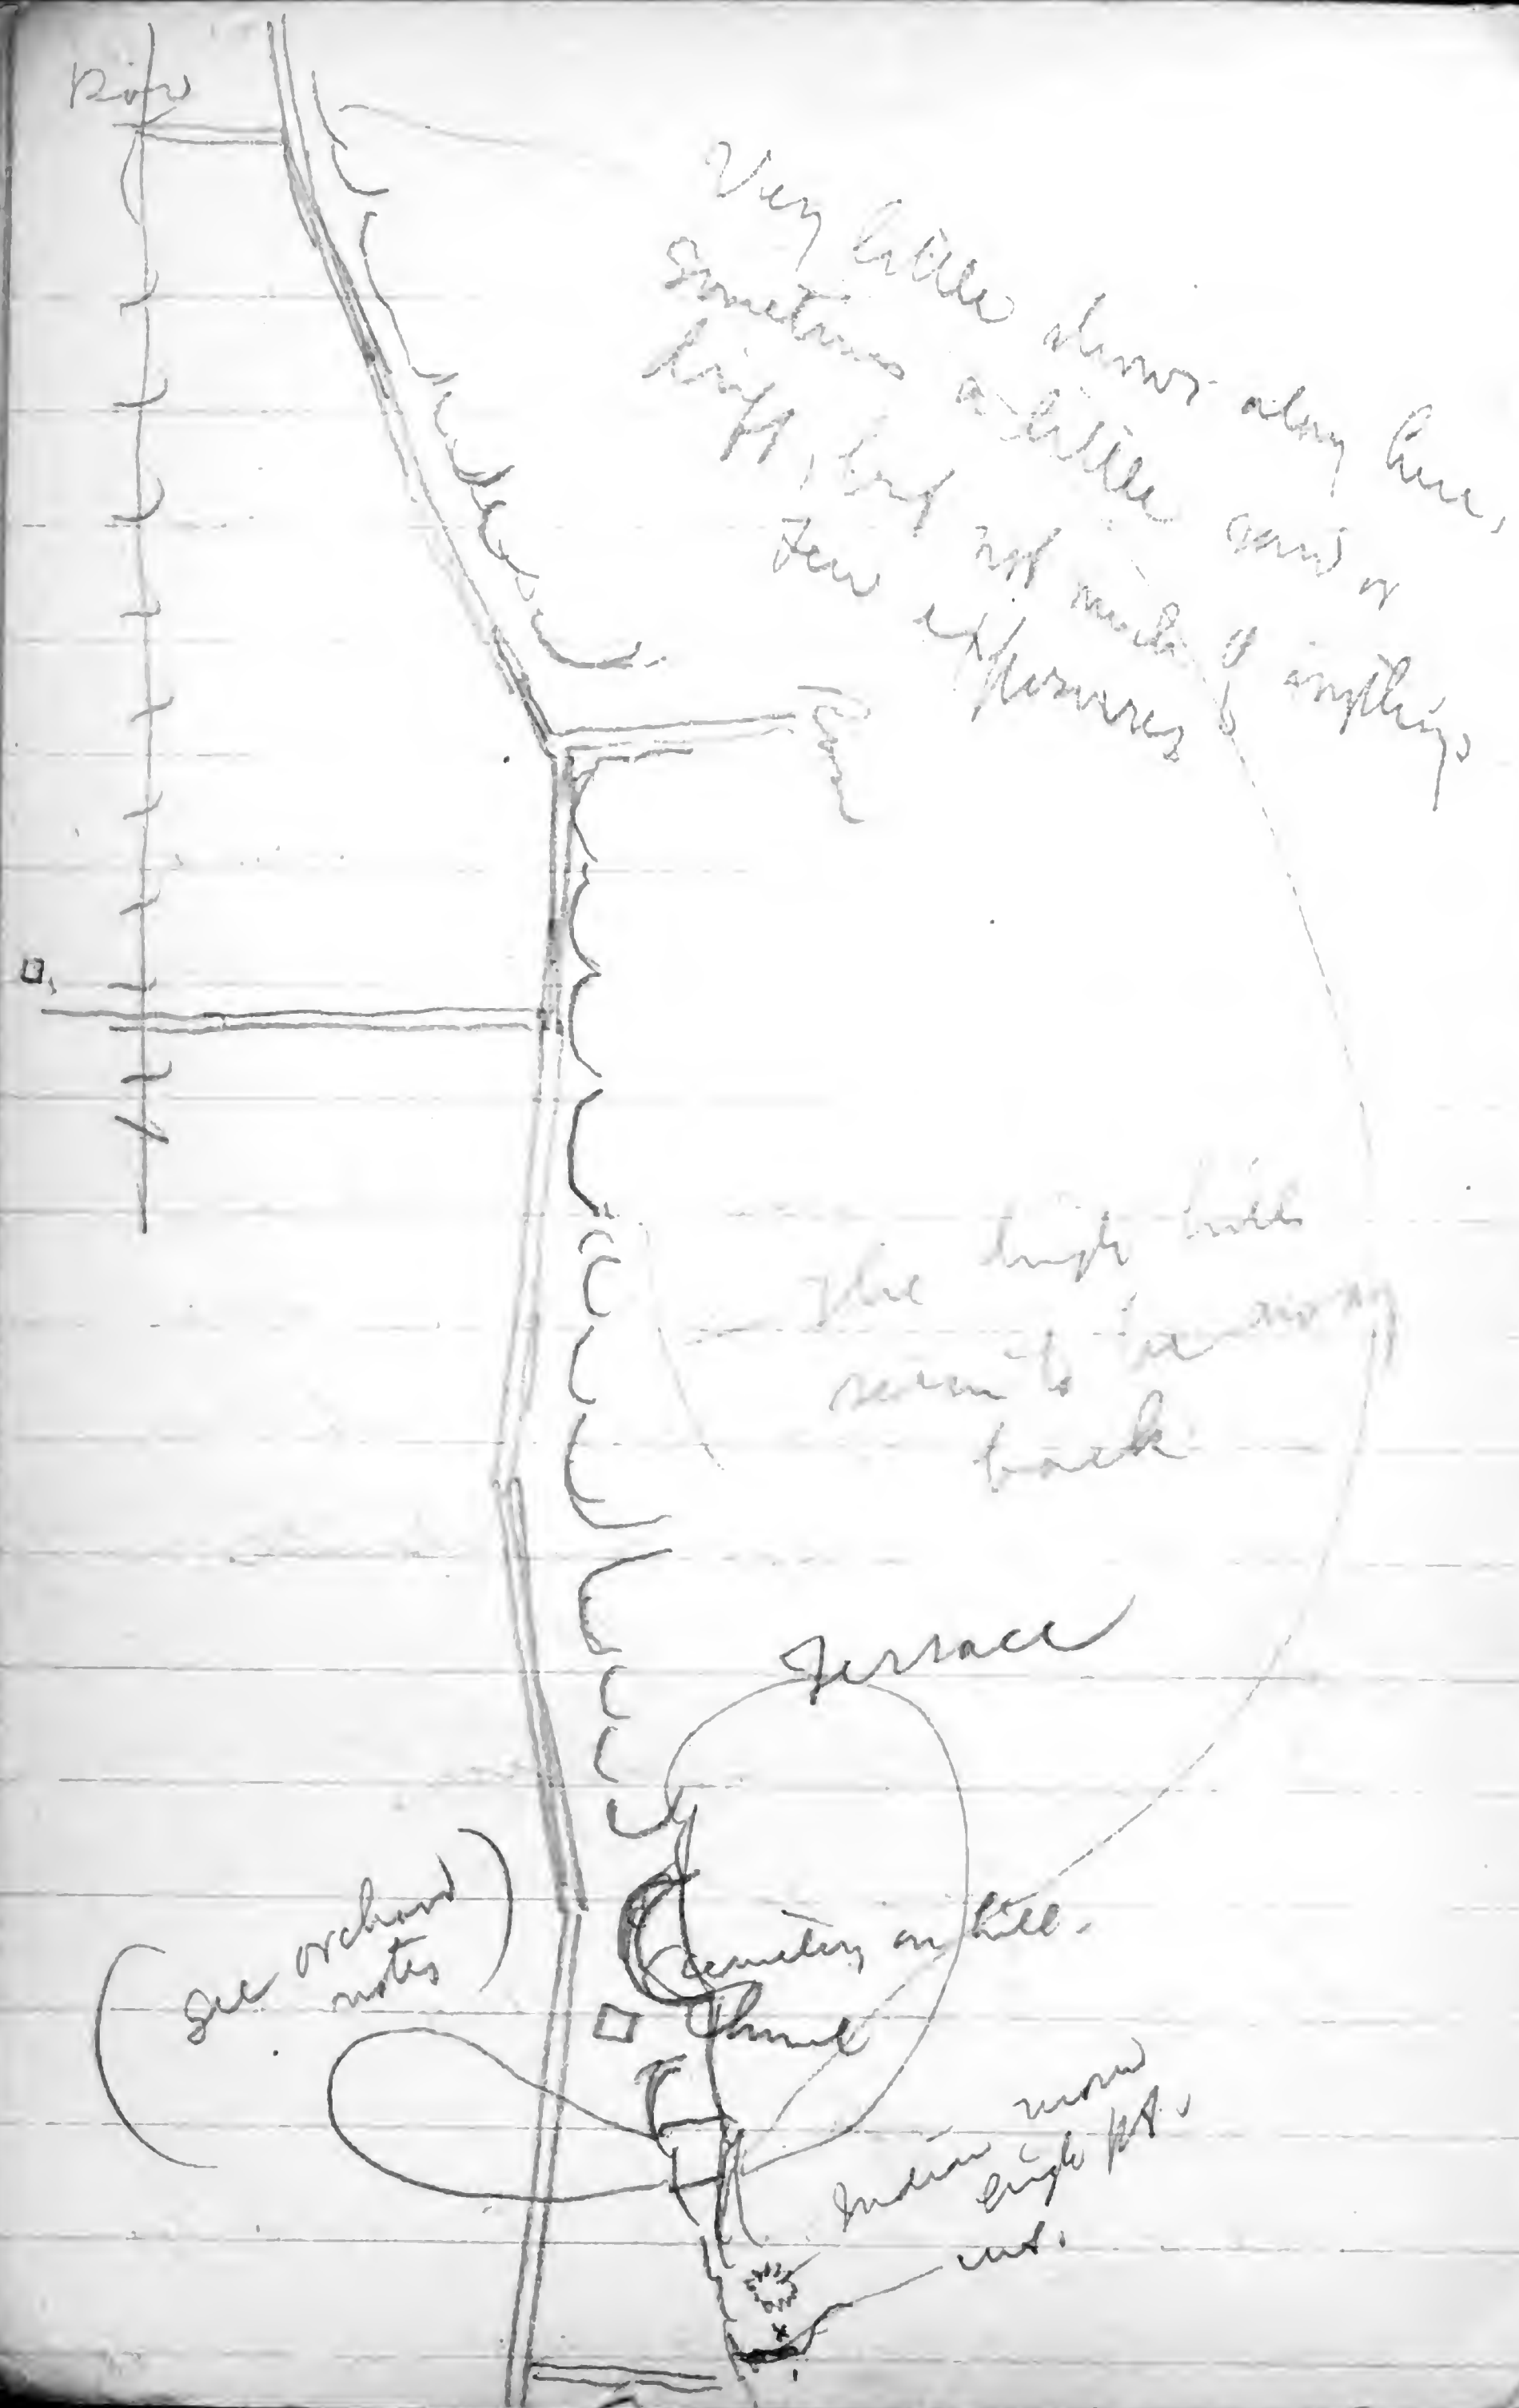 Very little shows along here,
Sometimes a little sand or
drift, but not much of anything.
Few exposures
The high hills
seem to be away
back
Terrace
(See orchard
notes)
Cemetery on hill.
Indian mound
high pt.